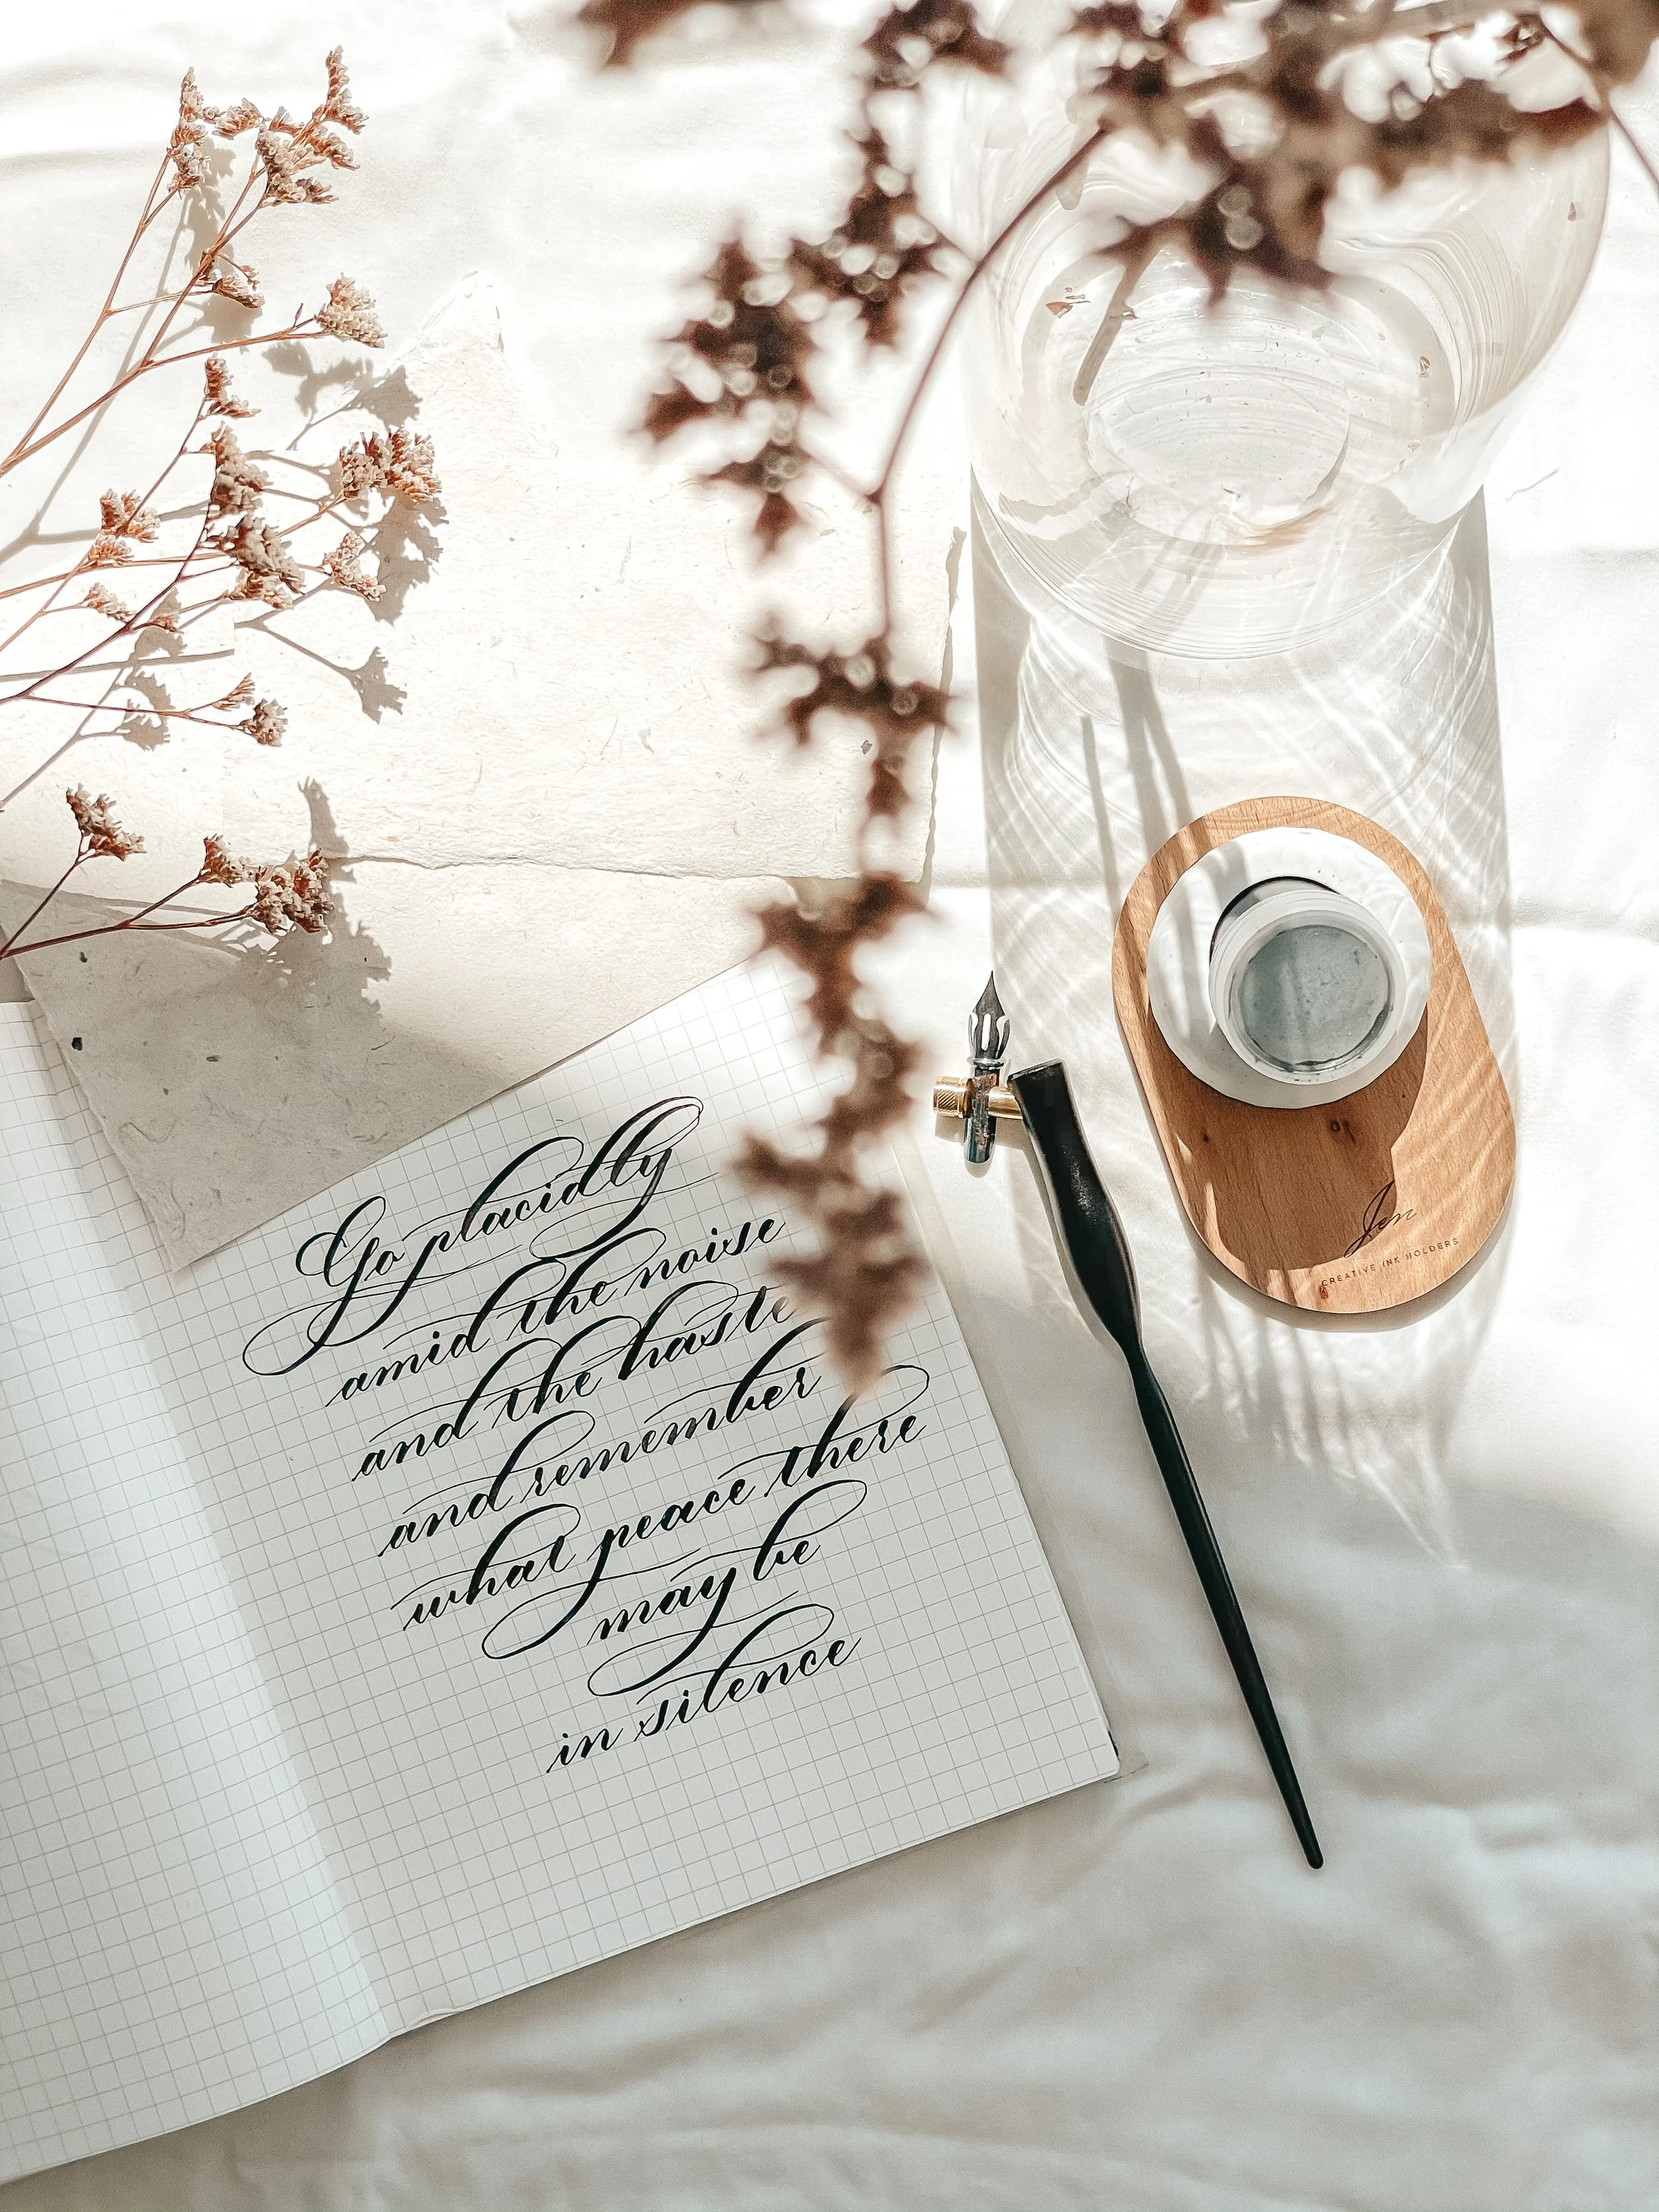 Go placidly
amid the noise
and the haste
and remember
what peace there
may be
in silence
Jen
CREATIVE INK HOLDERS